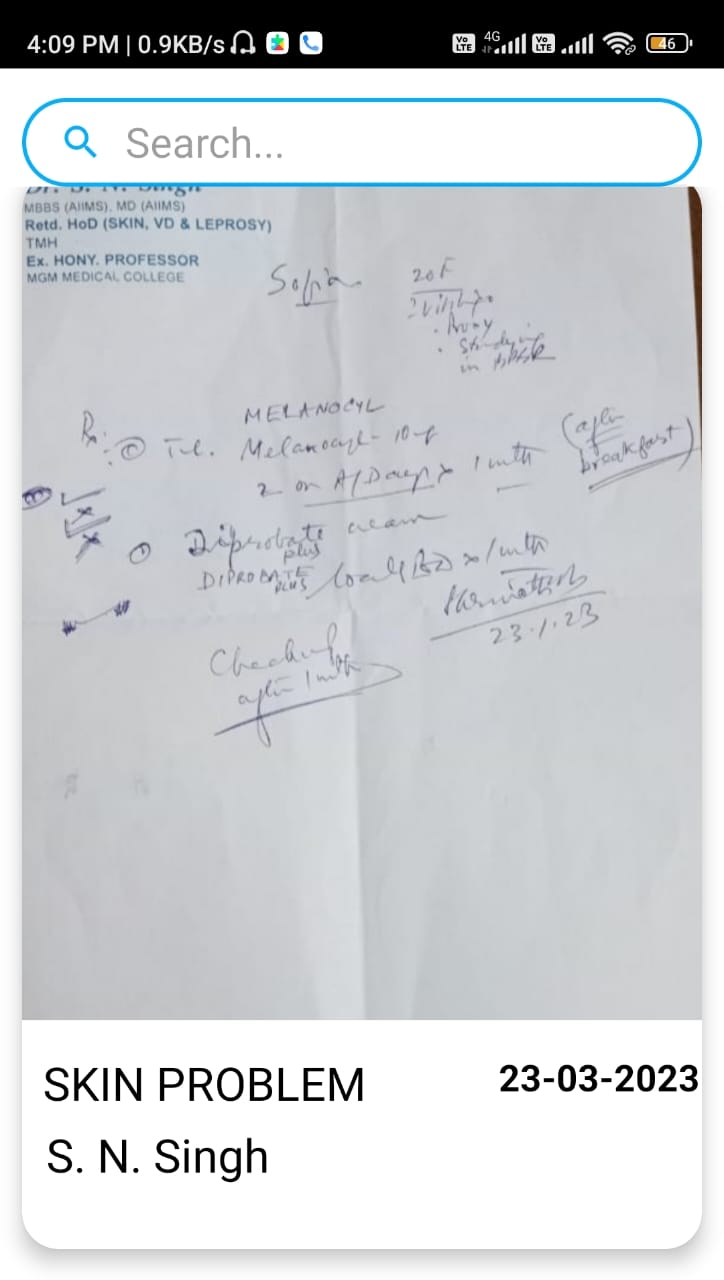 4:09 PM | 0.9KB/s
Vo LTE 4G Vo LTE 46
Search...
Dr. S. N. Singh
MBBS (AIIMS), MD (AIIMS)
Retd. HoD (SKIN, VD & LEPROSY)
TMH
Ex. HONY. PROFESSOR
MGM MEDICAL COLLEGE
20F
Studying
in
MELANOCYL
Melanocyl 10
2 on A/Days x 1 mth (after breakfast)
Diprobate plus cream
DIPROBATE PLUS locally BD x 1 mth
23.1.23
Checkup
after 1 mth
SKIN PROBLEM
23-03-2023
S. N. Singh